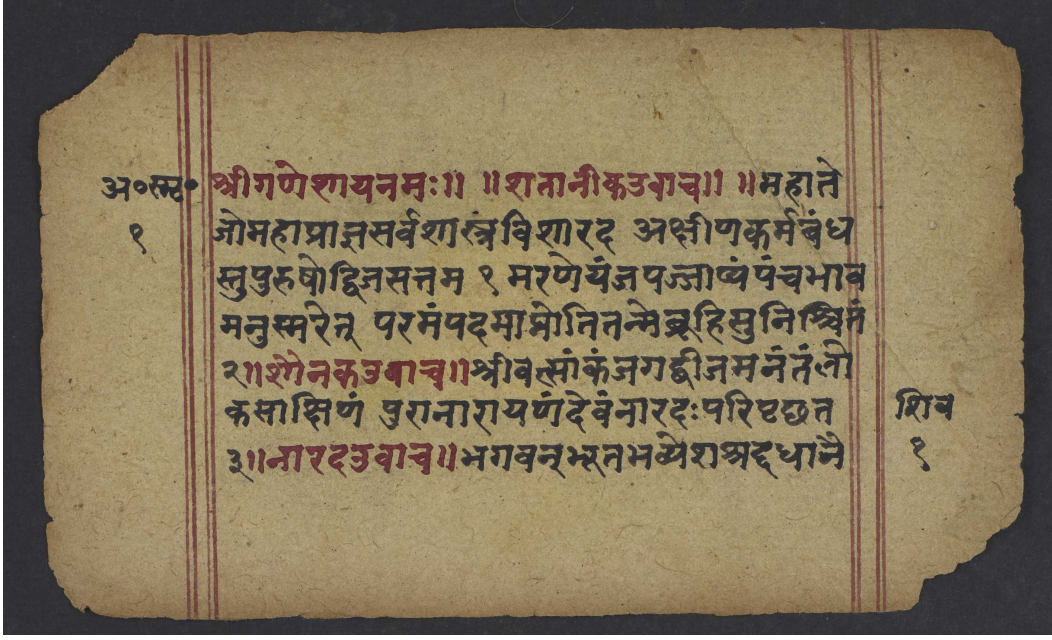 अ०स्मृ० श्रीगणेशायनमः॥ ॥शतानीकउवाच॥ ॥महाते
१ जोमहाप्राज्ञसर्वशास्त्रविशारद अक्षीणकर्मबंध
स्तुपुरुषोद्विजसत्तम १ मरणेयंजपज्जाप्यंपंचभाव
मनुस्मरेत् परमंपदमाप्नोतितन्मेब्रूहिसुनिश्चितं
२॥शौनकउवाच॥श्रीवत्सांकंजगद्बीजमनंतंलो
कसाक्षिणं पुरानारायणंदेवंनारदःपरिपृच्छत शिव
३॥नारदउवाच॥भगवन्भूतभव्येशश्रद्दधानै १